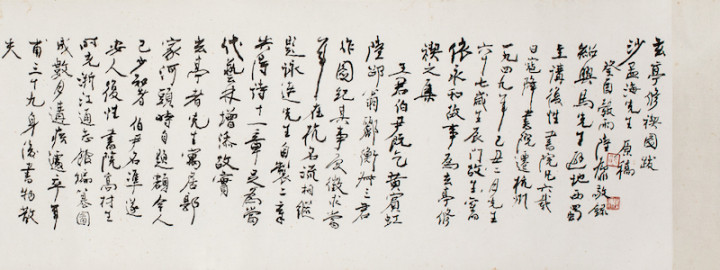 玄亭修禊图跋
沙孟海先生 原稿
癸酉穀雨陸敬錄
紹興馬先生避地西蜀
主講復性書院凡六載
日寇降書院遷杭州
一九四九年己丑二月先生
六十七歲生辰門故生
依永和故事為玄亭修
禊之集
王君伯尹既乞黃賓虹
陸翁酈衡叔三君
作圖紀其事友徵求當
年在杭名流相繼
題詠迄先生自製二章
共得詩十一章足為當
代藝林增添故實
玄亭者先生寓居
家河頭時自題額今人
已少知者伯尹名準遂
安人復性書院高材生
時充浙江通志館編纂圖
成數月遘疾遽卒年
甫三十九身後書物散
失